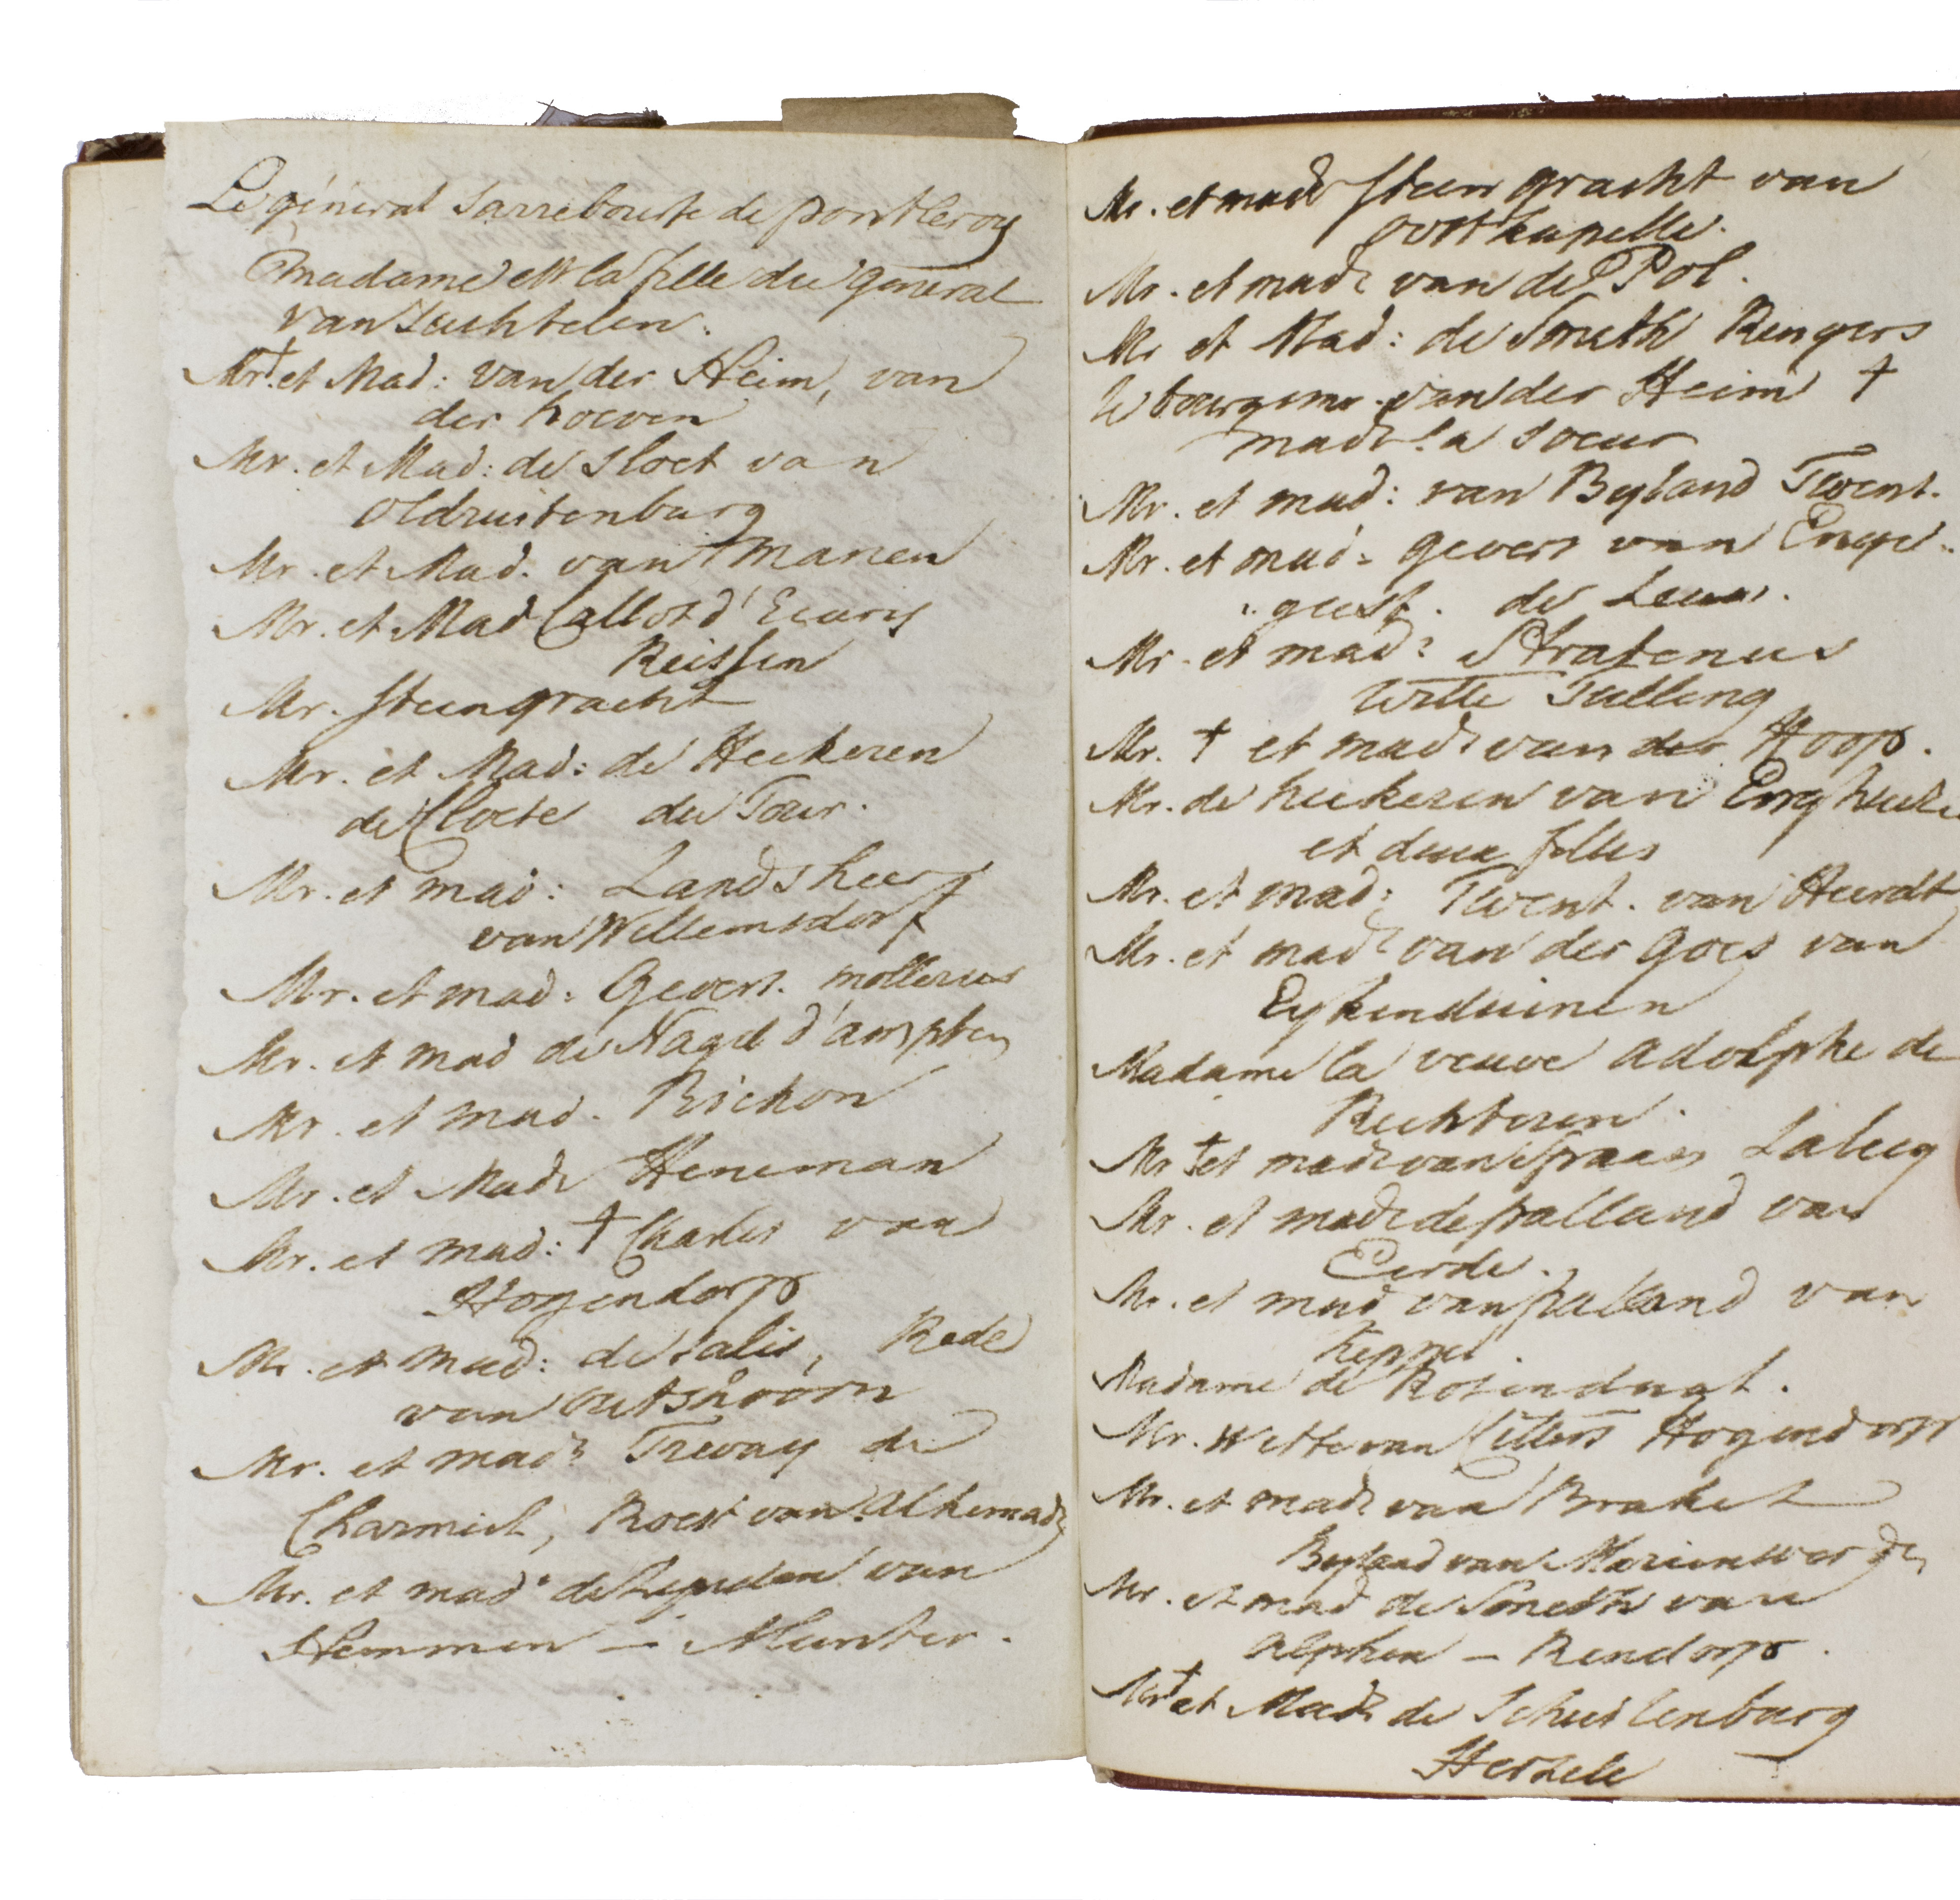 Le général Sarrebourse de pontleroy
madame et la fille du général
van Suchtelen.
Mr † et Mad: van der Heim, van
der hoeven
Mr. et Mad: de Sloet van
Oldruitenburg
Mr. et Mad. van Manen
Mr. et Mad Callot d'Ecuris
Reissen
Mr. Steengracht
Mr. et Mad: de Heekeren
de Cloese du Tour.
Mr. et mad: Landsheer
van Willemsdorf
Mr. et mad: Gevers. mollerus
Mr. et mad de Nagel d'ampsen
Mr. et mad. Bichon
Mr. et Made Heneman
Mr. et mad: † Charles van
Hogendorp
Mr. et mad: de Salis, Rede
van outshoorn
Mr. et made Trevay de
Charmiel, Roest van Alkemade
Mr. et made de Lynden van
Hemmen – Munter.
Mr. et made Steengracht van
oostkapelle.
Mr. et made van de Pol.
Mr et Mad: de Smeth Rengers
le bourgemr. van der Heim †
made sa soeur
Mr. et mad: van Byland Twent.
Mr. et mad: gevers van Enge-
geest. de Leeuw.
Mr. et made Stratenus
Witte Tulling
Mr. † et made van der Hoop.
Mr. de heekeren van Enghuize
et deux filles
Mr. et mad: Twent. van Heerdt
Mr. et made van der goes van
Eykenduinen
Madame la veuve adolphe de
Rechteren.
Mr † et made van Spaan Lalecq
Mr. et made de palland van
Eerde.
Mr. et mad van palland van
Keppel.
Madame de Rosendaal.
Mr. Witte van Citters Hogendorp
Mr. et made van Brakel
Byland van Marienwaerde
Mr. et mad de Smeth van
Alphen – Rendorp.
Mr † et Made de Schuilenburg
Herzele